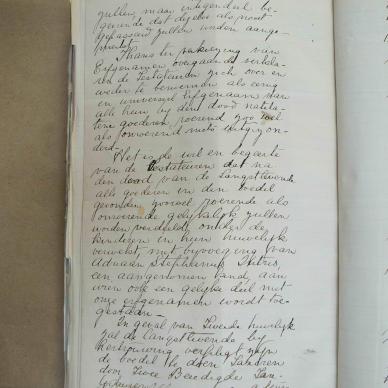 zullen, maar integendeel be-
geerende dat dezelve als prest
gepasseerd zullen worden aange-
Thans ter makezing van
Erfgenamen overgaande verkla-
ren de Testateuren zich over en
weder te benoemen als eenig
en universeel Erfgenaam van
alle hun bij den dood nagela-
tene goederen, roerend zoo wel
als onroerend niets uitgezon-
derd.
Het is de wil en begeerte
van de Testateuren dat na
den dood van de Langstlevende
alle goederen in den boedel
gevonden zoowel roerende als
onroerende gelykelyk zullen
worden verdeeld onder de
kinderen in hun huwelijk
verwekt, met byvoeging van
Adriaan Stephanus
een aangenomen kind, aan
wien ook een gelyke deel met
onze erfgenamen wordt toe-
gestaan.
In geval van Tweede huwelijk
zal de langstlevende by
hertrouwing verpligt zyn
de boedel te doen Taxeren
door Twee Beëdigde Tax-